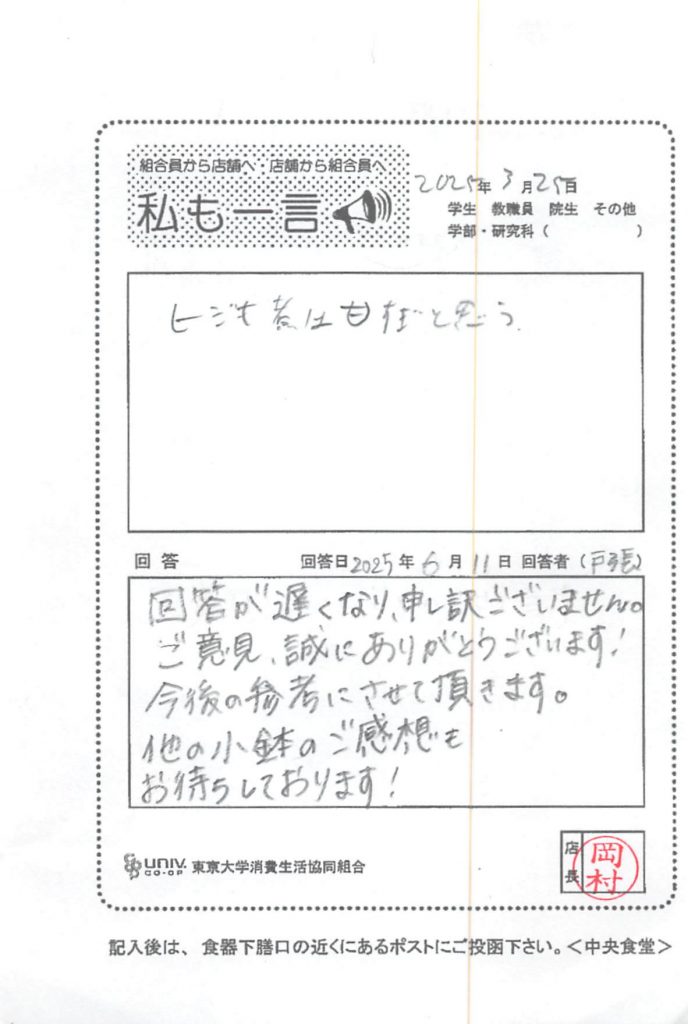 組合員から店舗へ・店舗から組合員へ
私も一言
2025年3月25日
学生 教職員 院生 その他
学部・研究科( )
ヒジキ煮は甘すぎと思う.
回答 回答日2025年6月11日 回答者(戸張)
回答が遅くなり、申し訳ございません。
ご意見、誠にありがとうございます!
今後の参考にさせて頂きます。
他の小鉢のご感想も
お待ちしております!
UNIV. CO-OP 東京大学消費生活協同組合
店長 岡村
記入後は、食器下膳口の近くにあるポストにご投函下さい。<中央食堂>